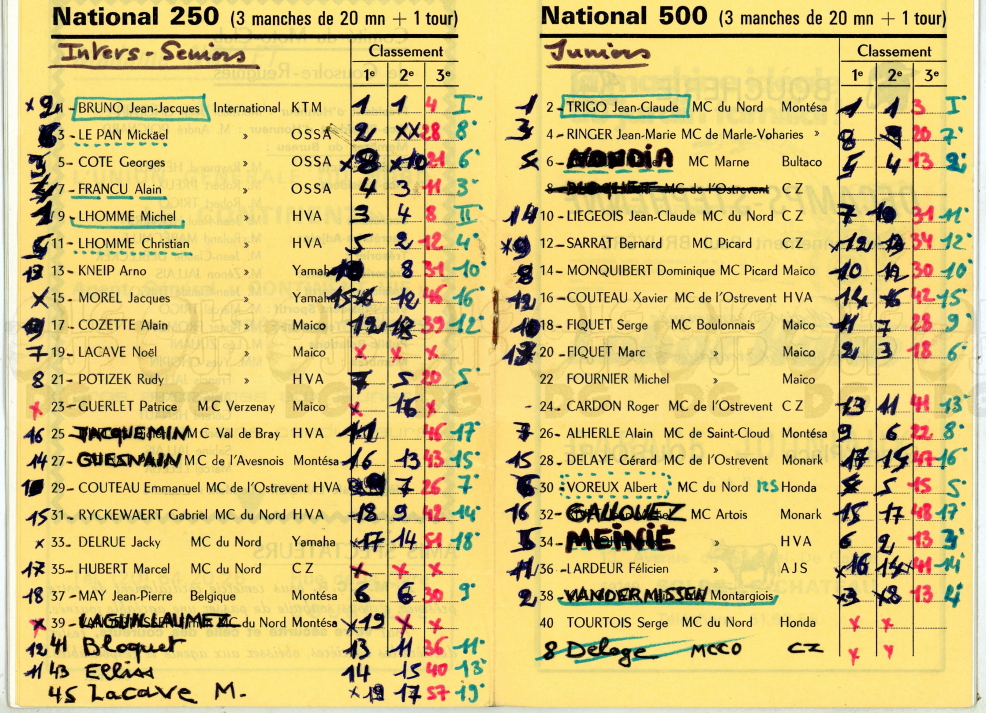 National 250 (3 manches de 20 mn + 1 tour)
Inters-Seniors
Classement
1e 2e 3e
x 2 1 - BRUNO Jean-Jacques International KTM 1 1 4 I°
3 - LE PAN Mickäel » OSSA 2 XX 28 8°
5 - COTE Georges » OSSA x8 x10 21 6°
7 - FRANCU Alain » OSSA 4 3 11 3°
1 9 - LHOMME Michel » HVA 3 4 8 II
5 11 - LHOMME Christian » HVA 5 2 12 4°
13 - KNEIP Arno » Yamaha 10 8 31 10°
x 15 - MOREL Jacques » Yamaha 15 12 46 16°
17 - COZETTE Alain » Maico 12 39 12°
7 19 - LACAVE Noël » Maico x x x
8 21 - POTIZEK Rudy » HVA 7 5 20 5°
x 23 - GUERLET Patrice MC Verzenay Maico x 16 x
16 25 - JACQUEMIN MC Val de Bray HVA 11 46 17°
14 27 - GUESNAIN MC de l'Avesnois Montésa 16 13 43 15°
29 - COUTEAU Emmanuel MC de l'Ostrevent HVA 7 26 7°
15 31 - RYCKEWAERT Gabriel MC du Nord HVA 18 9 42 14°
x 33 - DELRUE Jacky MC du Nord Yamaha x17 14 51 18°
17 35 - HUBERT Marcel MC du Nord CZ x x x
18 37 - MAY Jean-Pierre Belgique Montésa 6 6 30 9°
x 39 - LAGUILLAUMEZ MC du Nord Montésa x19 x x
12 41 Bloquet 13 11 36 11°
11 43 Elliss 14 15 40 13°
45 Lacave M. x19 17 57 19°
National 500 (3 manches de 20 mn + 1 tour)
Juniors
Classement
1e 2e 3e
1 2 - TRIGO Jean-Claude MC du Nord Montésa 1 1 3 I°
3 4 - RINGER Jean-Marie MC de Marle-Voharies » 8 9 20 7°
6 - NONDIA MC Marne Bultaco 5 4 13 2°
8 - BLOQUET MC de l'Ostrevent CZ
14 10 - LIEGEOIS Jean-Claude MC du Nord CZ 7 10 31 11°
x9 12 - SARRAT Bernard MC Picard CZ x12 34 12°
8 14 - MONQUIBERT Dominique MC Picard Maico 10 30 10°
12 16 - COUTEAU Xavier MC de l'Ostrevent HVA 14 16 42 15°
18 - FIQUET Serge MC Boulonnais Maico 11 7 28 9°
20 - FIQUET Marc » Maico 3 18 6°
22 FOURNIER Michel » Maico
- 24 - CARDON Roger MC de l'Ostrevent CZ 13 11 41 13°
7 26 - ALHERLE Alain MC de Saint-Cloud Montésa 9 6 22 8°
15 28 - DELAYE Gérard MC de l'Ostrevent Monark 17 15 47 16°
30 VOREUX Albert MC du Nord 125 Honda 5 15 5°
16 32 - GALLOUEZ MC Artois Monark 15 17 48 17°
34 - MEINIE » HVA 6 2 13 3°
11 36 - LARDEUR Félicien » AJS x16 14 41 14°
2 38 - VANDERMISSEN Montargiois x3 x8 13 4°
40 TOURTOIS Serge MC du Nord Honda x x
8 Deloge MCCO CZ x x